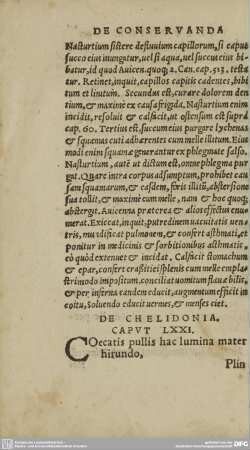 DE CONSERVANDA
Nasturtium sistere defluuium capillorum, si caput
succo eius inungatur, uel si aqua, uel succus eius bi-
batur, id quod Auicen. quoq; 2. Can. cap. 513. testa
tur. Retinet, inquit, capillos capitis cadentes, bibi
tum et linitum. Secundus est, curare dolorem den
tium, & maximè ex causa frigida. Nasturtium enim
incidit, resoluit & calfacit, ut ostensum est suprà
cap. 60. Tertius est, succum eius purgare lychenas
& squamas cuti adhærentes cum melle illitum. Eius
modi enim squamæ generantur ex phlegmate salso.
Nasturtium, autē ut dictum est, omne phlegma pur
gat. Quare intra corpus adsumptum, prohibet cau
sam squamarum, & easdem, foris illitū, abstersione
sua tollit, & maximè cum melle, nam & hoc quoq;
abstergit. Auicenna præterea & alios effectus enu
merat. Exiccat, inquit, putredinem uacuitatis uen
tris, mundificat pulmonem, & confert asthmati, et
ponitur in medicinis & sorbitionibus asthmatis,
eò quòd extenuet & incidat. Calfacit stomachum
& epar, confert crassitiei splenis cum melle empla-
strimodo impositum. conciliat uomitum flauæ bilis,
& per inferna eandem educit, augmentum efficit in
coitu, soluendo educit uermes, & menses ciet.
DE CHELIDONIA.
CAPVT LXXI.
COecatis pullis hac lumina mater
hirundo,
Plin